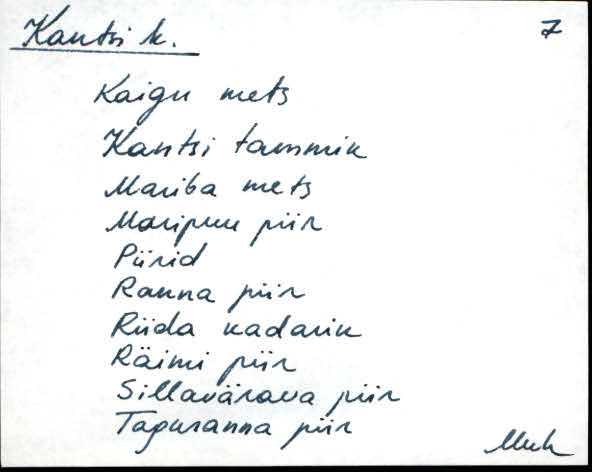 Kantsi k.
7
Kaigu mets
Kantsi tammik
Mariba mets
Maripuu piir
Piirid
Ranna piir
Riida kadarik
Räimi piir
Sillavärava piir
Taguranna piir
Muh